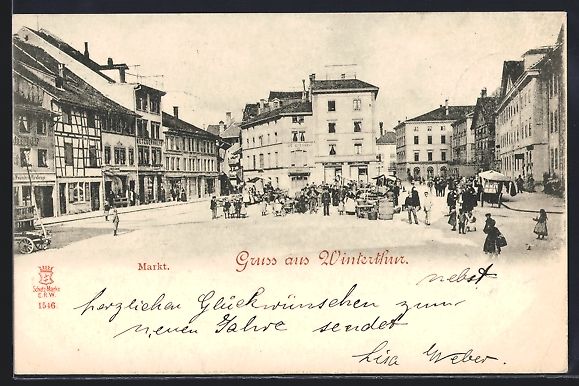 Markt.
Gruss aus Winterthur.
Schutz-Marke
C.R.W.
1546
nebst
herzlichen Glückwünschen zum
neuen Jahre sendet
Lisa Weber.